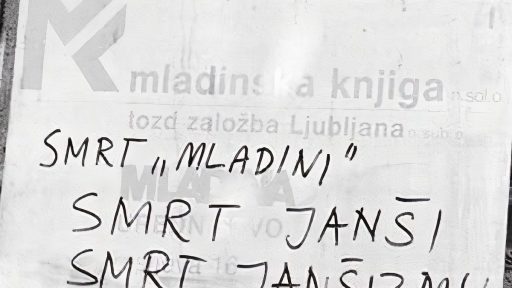 mladinska knjiga n.sol.o
tozd založba Ljubljana o.sub.o
SMRT „MLADINI”
MLADINA
SMRT JANŠI
SMRT JANŠIZMU